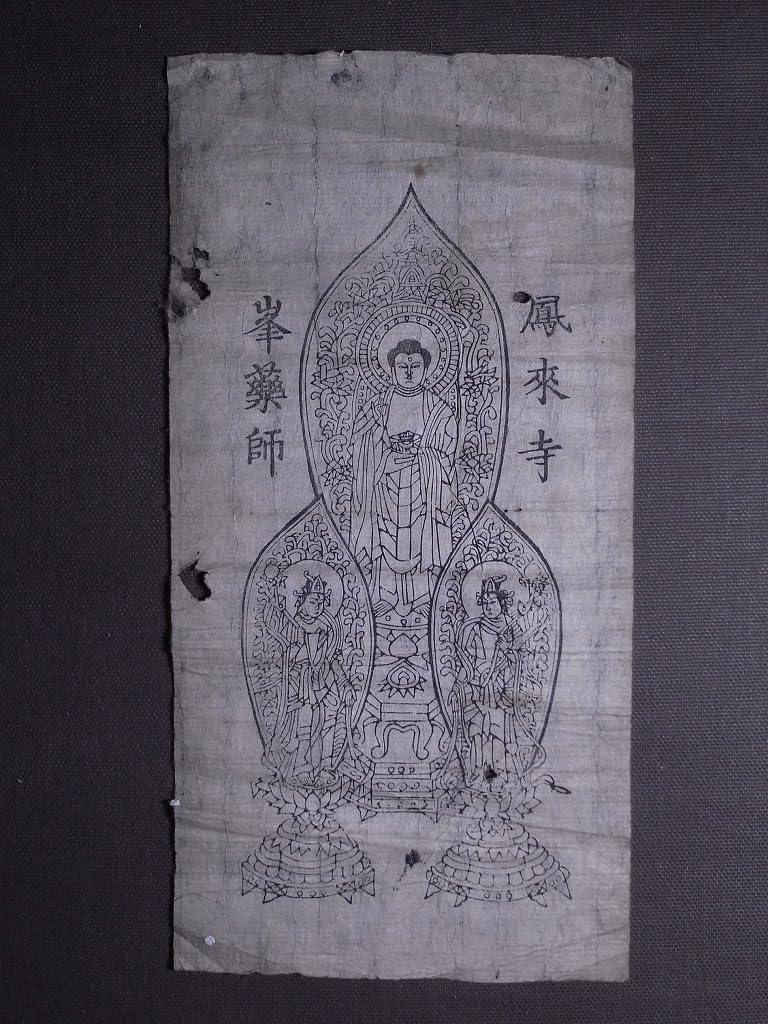 鳳來寺
峯藥師